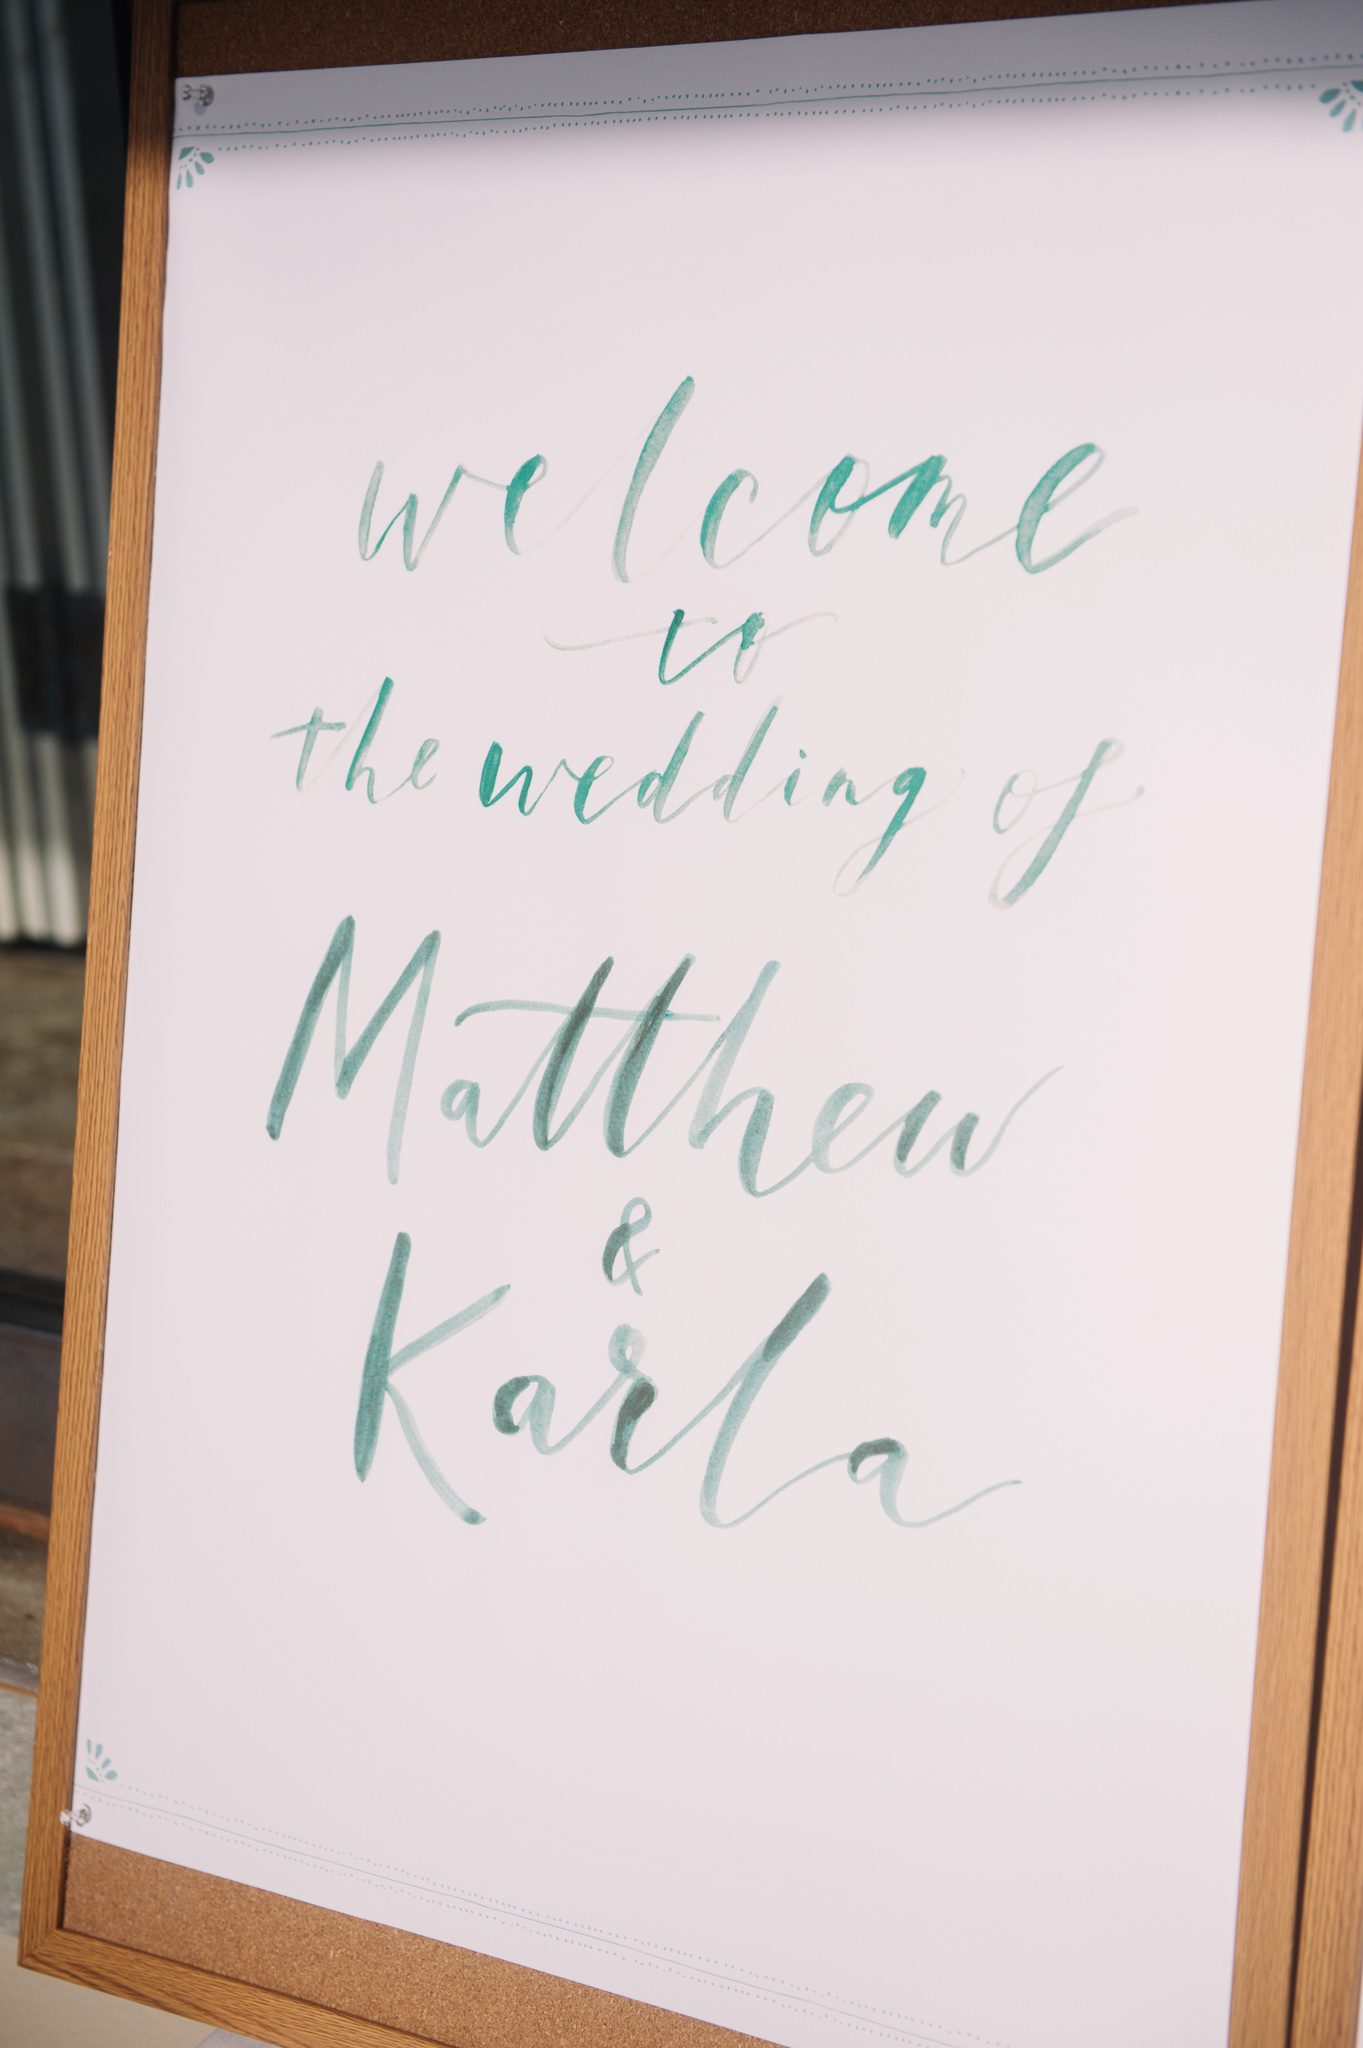 welcome
to
the wedding of
Matthew
&
Karla